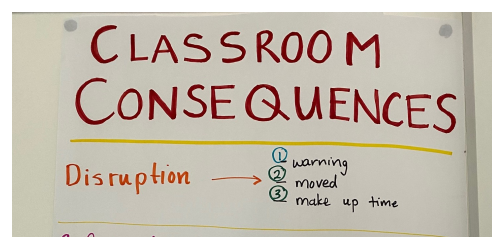 CLASSROOM
CONSEQUENCES
Disruption → ① warning
② moved
③ make up time